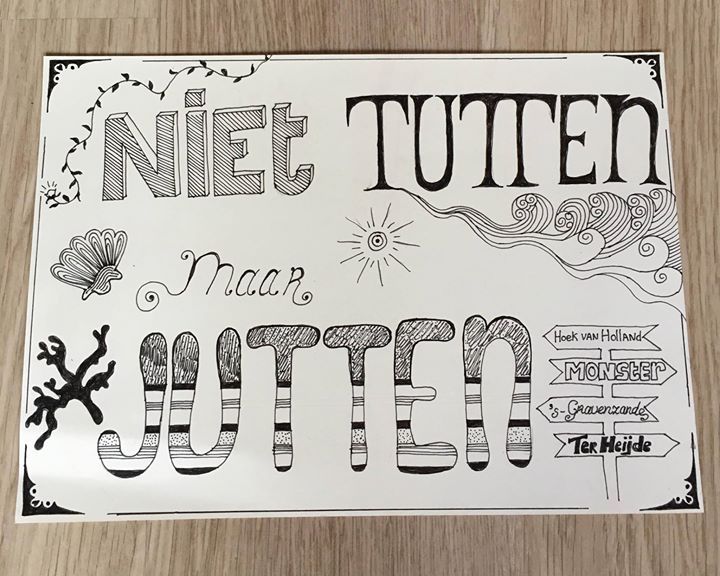 NiEt TUTTEN
maar
JUTTEN
Hoek van Holland
MONSTER
's-Gravenzande
Ter Heijde